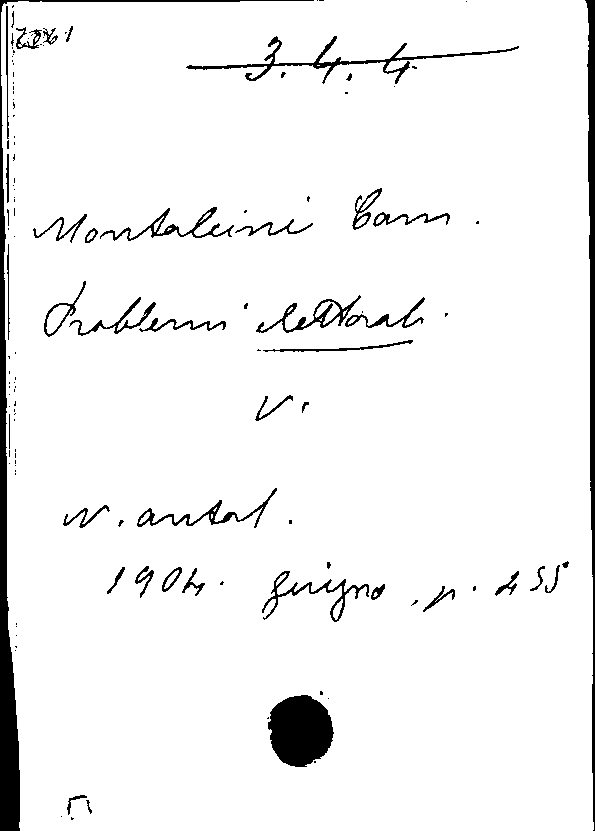 3. 4. 4
Montalcini Cam.
Problemi elettorali.
V.
N. antol.
1904. giugno, p. 455